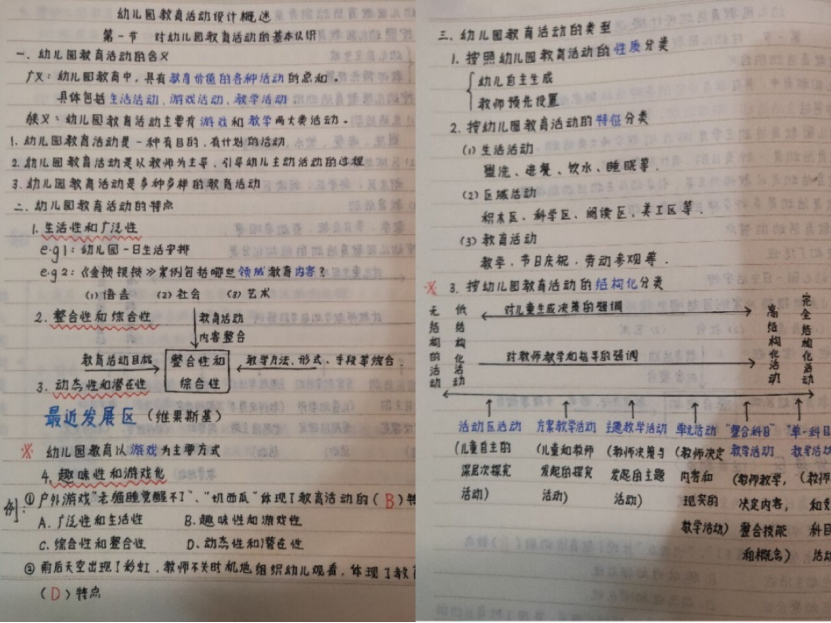 幼儿园教育活动设计概述
第一节 对幼儿园教育活动的基本认识
一、幼儿园教育活动的含义
广义：幼儿园教育中，具有教育价值的各种活动的总和。
具体包括生活活动、游戏活动、教学活动
狭义：幼儿园教育活动主要有游戏和教学两大类活动。
1. 幼儿园教育活动是一种有目的，有计划的活动
2. 幼儿园教育活动是以教师为主导，引导幼儿主动活动的过程
3. 幼儿园教育活动是多种多样的教育活动
二、幼儿园教育活动的特点
1. 生活性和广泛性
e.g1：幼儿园一日生活安排
e.g2：《金锁银锁》案例包括哪些领域教育内容？
(1) 语言 (2) 社会 (3) 艺术
2. 整合性和综合性
教育活动
内容整合
教育活动目标
整合性和
综合性
教学方法、形式、手段等综合
3. 动态性和潜在性
最近发展区（维果斯基）
※ 幼儿园教育以游戏为主要方式
4. 趣味性和游戏化
例：①户外游戏“老猫睡觉醒不了”、“切西瓜”体现了教育活动的（B）特
A. 广泛性和生活性 B. 趣味性和游戏性
C. 综合性和整合性 D. 动态性和潜在性
②雨后天空出现了彩虹，教师不失时机地组织幼儿观看，体现了教育
（D）特点
三、幼儿园教育活动的类型
1. 按照幼儿园教育活动的性质分类
幼儿自主生成
教师预先设置
2. 按幼儿园教育活动的特征分类
(1) 生活活动
盥洗、进餐、饮水、睡眠等.
(2) 区域活动
积木区、科学区、阅读区、美工区等.
(3) 教育活动
教学、节日庆祝、劳动参观等.
※ 3. 按幼儿园教育活动的结构化分类
无结构的活动
低结构化活动
对儿童生成决策的强调
对教师教学和指导的强调
高结构化活动
完全结构化活动
活动区活动
（儿童自主的
深层次探究
活动）
方案教学活动
（儿童和教师
发起的探究
活动）
主题教学活动
（教师决策与
发起的主题
活动）
单元活动
（教师决定
内容和
现实的
教学活动）
“整合科目”
教学活动
（教师教学，
决定内容，
整合技能
和概念）
“单一科目
教学活动
（教师
和
科目
活动